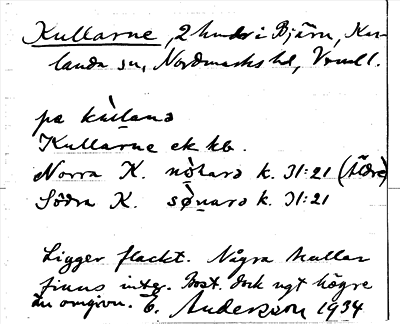 Kullarne, 2 hmdr i Bjärn, Kar-
landa sn, Nordmarks hd, Vrml.
pa kùlana
Kullarne ek kb.
Norra K. nò̱lara k. 31:21 (Äldre)
Södra K. sø̱̀nara k. 31:21
Ligger flackt. Några kullar
finns inte. Bost. dock ngt högre
än omgivn. E. Andersson 1934